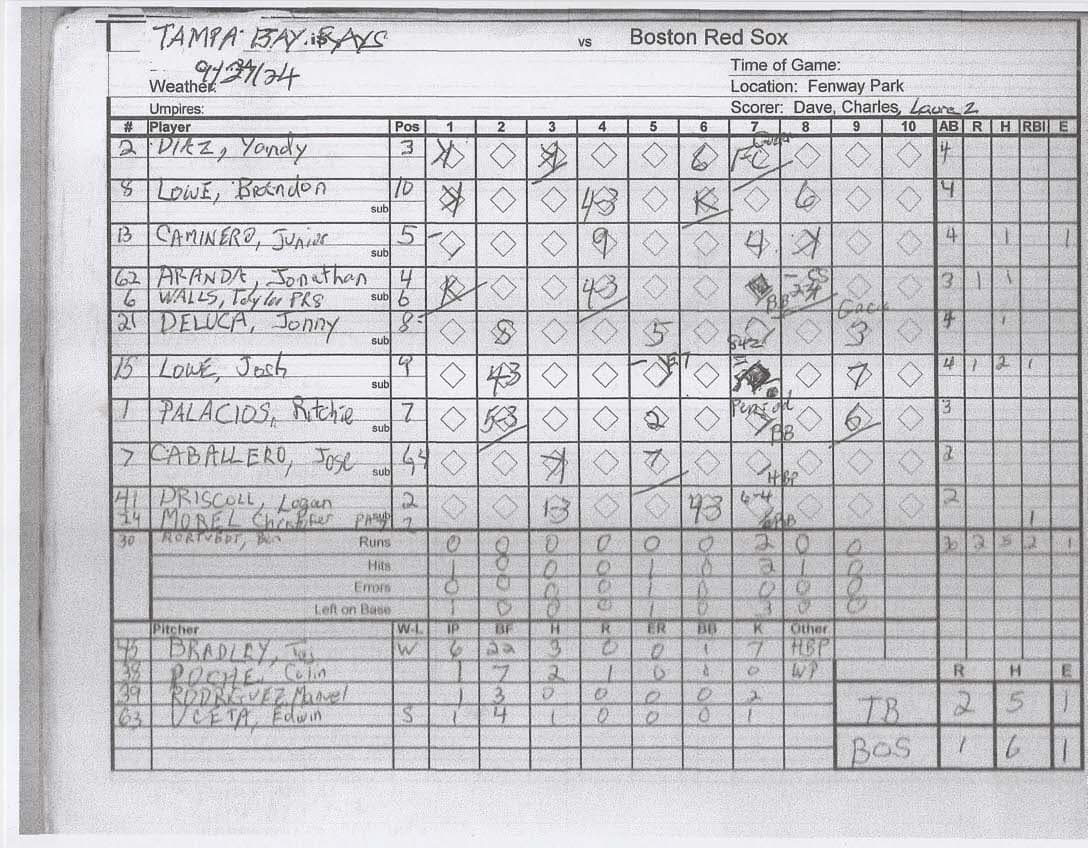 TAMPA BAY RAYS vs Boston Red Sox
9/27/24 Time of Game:
Weather: Location: Fenway Park
Umpires: Scorer: Dave, Charles, Laura Z
# Player Pos 1 2 3 4 5 6 7 8 9 10 AB R H RBI E
2 DIAZ, Yandy 3 K K 6 FC 4
8 LOWE, Brandon 10 sub K 43 K 6 4
13 CAMINERO, Junior 5 sub 9 4 K 4 1 1
62 ARANDA, Jonathan 4 K 43 BB 3 1 1
6 WALLS, Taylor PR8 sub 6
21 DELUCA, Jonny 8 sub 8 5 3 4 1
15 LOWE, Josh 9 sub 43 7 4 1 2 1
1 PALACIOS, Ritchie 7 sub 53 2 BB 6 3
7 CABALLERO, Jose sub 64 K 7 HBP 2
41 DRISCOLL, Logan 2 13 43 6-4 BB 2
24 MOREL Christopher sub 1
30 RORTVEDT, Ben Runs 0 0 0 0 0 0 2 0 0 30 2 5 2 1
Hits 1 0 0 0 1 0 2 1 0
Errors 0 0 0 0 1 0 0 0 0
Left on Base 1 0 0 0 1 0 3 0 0
Pitcher W-L IP BF H R ER BB K Other
45 BRADLEY, Taj W 6 22 3 0 0 1 7 HBP
38 POCHE, Colin 1 7 2 1 0 0 0 WP R H E
39 RODRIGUEZ, Manuel 1 3 0 0 0 0 2 TB 2 5 1
63 UCETA, Edwin S 1 4 1 0 0 0 1
BOS 1 6 1